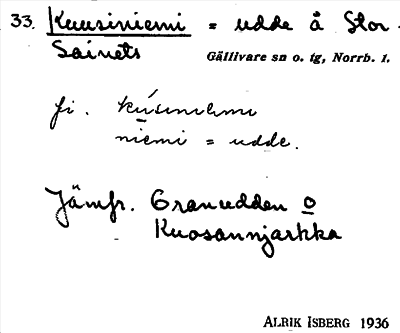 33. Kuusiniemi = udde å Stor-
Sainets
Gällivare sn o. tg, Norrb. l.
fi.
niemi = udde.
Jämfr. Granudden o
Kuosannjarkka
ALRIK ISBERG 1936